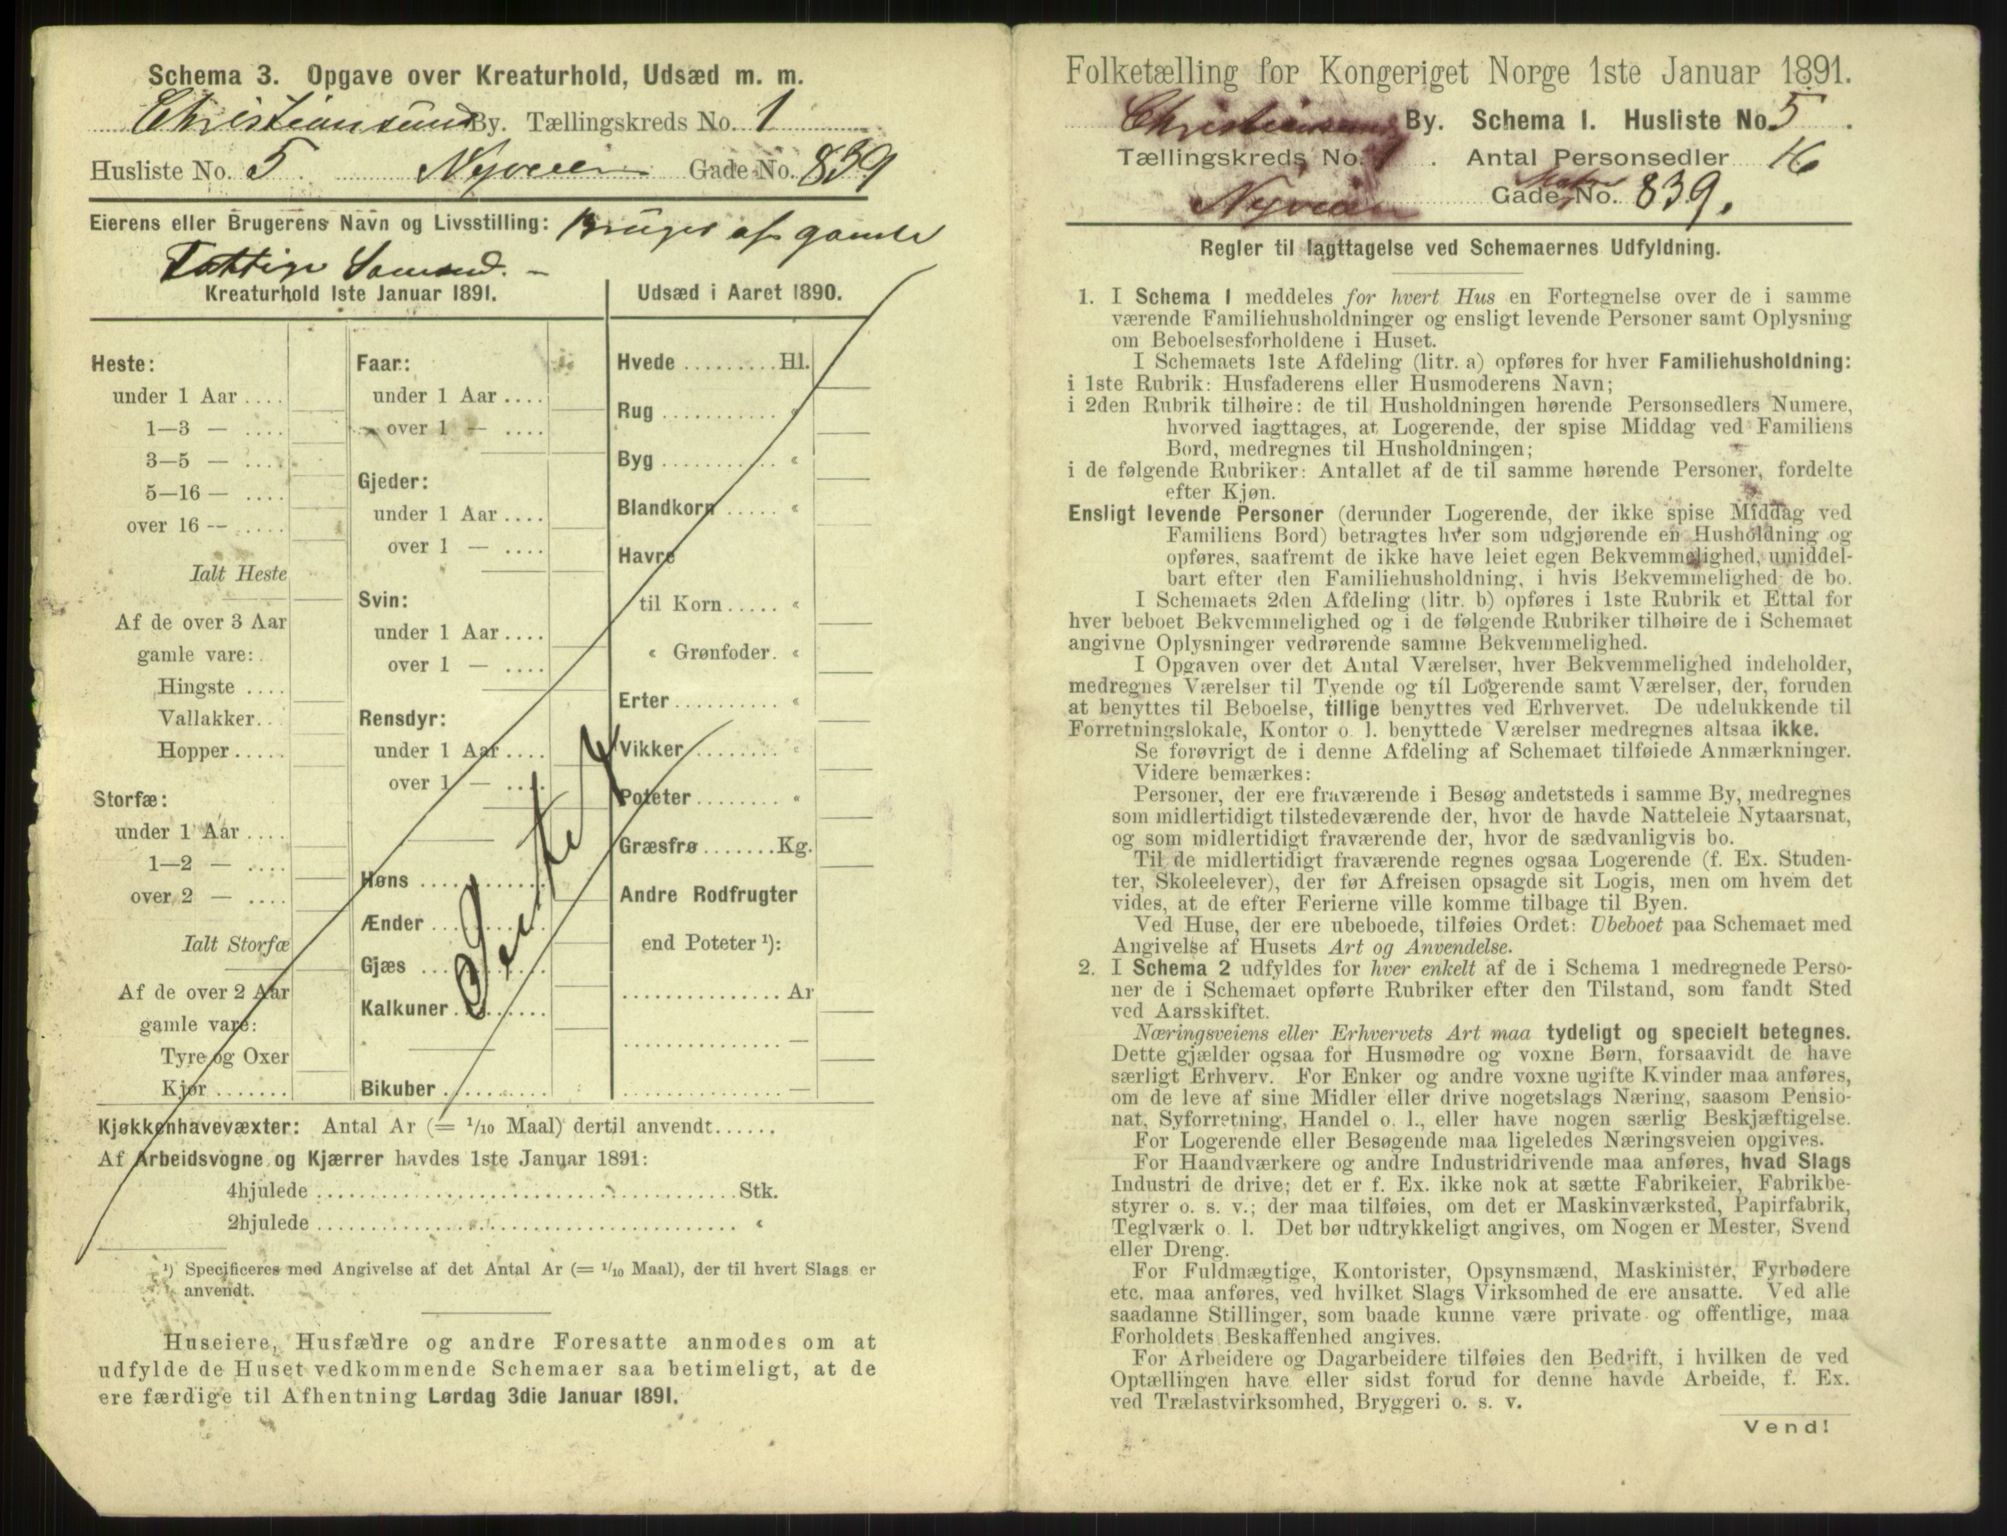 Schema 3. Opgave over Kreaturhold, Udsæd m. m.
Christiansund By. Tællingskreds No. 1
Husliste No. 5. Nyveien Gade No. 839
Eierens eller Brugerens Navn og Livsstilling: Bruges af gamle
Fattige Lemmer. –
Kreaturhold 1ste Januar 1891.
Heste:
under 1 Aar ....
1—3 — ....
3—5 — ....
5—16 — ....
over 16 — .....
Ialt Heste
Af de over 3 Aar
gamle vare:
Hingste ....
Vallakker...
Hopper .....
Storfæ:
under 1 Aar ....
1—2 — ....
over 2 — ....
Ialt Storfæ
Af de over 2 Aar
gamle vare:
Tyre og Oxer
Kjør .......
Faar:
under 1 Aar ....
over 1 — ....
Gjeder:
under 1 Aar ....
over 1 — ....
Svin:
under 1 Aar ....
over 1 — ....
Rensdyr:
under 1 Aar ....
over 1 — ....
Høns ............
Ænder ...........
Gjæs ............
Kalkuner .........
Bikuber ..........
Udsæd i Aaret 1890.
Hvede ......... Hl.
Rug ........... «
Byg ........... «
Blandkorn ..... «
Havre
til Korn ..... «
« Grønfoder. «
Erter .......... «
Vikker ......... «
Poteter ........ «
Græsfrø ....... Kg.
Andre Rodfrugter
end Poteter ¹):
............... Ar
............... —
............... —
Kjøkkenhavevæxter: Antal Ar (= 1/10 Maal) dertil anvendt......
Af Arbeidsvogne og Kjærrer havdes 1ste Januar 1891:
4hjulede ........................................ Stk.
2hjulede ........................................ «
¹) Specificeres med Angivelse af det Antal Ar (= 1/10 Maal), der til hvert Slags er
anvendt.
Huseiere, Husfædre og andre Foresatte anmodes om at
udfylde de Huset vedkommende Schemaer saa betimeligt, at de
ere færdige til Afhentning Lørdag 3die Januar 1891.
Folketælling for Kongeriget Norge 1ste Januar 1891.
Christiansund By. Schema 1. Husliste No. 5.
Tællingskreds No. 1. Antal Personsedler 16
Matr
Nyveien Gade No. 839.
Regler til Iagttagelse ved Schemaernes Udfyldning.
1. I Schema 1 meddeles for hvert Hus en Fortegnelse over de i samme
værende Familiehusholdninger og ensligt levende Personer samt Oplysning
om Beboelsesforholdene i Huset.
I Schemaets 1ste Afdeling (litr. a) opføres for hver Familiehusholdning:
i 1ste Rubrik: Husfaderens eller Husmoderens Navn;
i 2den Rubrik tilhøire: de til Husholdningen hørende Personsedlers Numere,
hvorved iagttages, at Logerende, der spise Middag ved Familiens
Bord, medregnes til Husholdningen;
i de følgende Rubriker: Antallet af de til samme hørende Personer, fordelte
efter Kjøn.
Ensligt levende Personer (derunder Logerende, der ikke spise Middag ved
Familiens Bord) betragtes hver som udgjørende en Husholdning og
opføres, saafremt de ikke have leiet egen Bekvemmelighed, umiddel-
bart efter den Familiehusholdning, i hvis Bekvemmelighed de bo.
I Schemaets 2den Afdeling (litr. b) opføres i 1ste Rubrik et Ettal for
hver beboet Bekvemmelighed og i de følgende Rubriker tilhøire de i Schemaet
angivne Oplysninger vedrørende samme Bekvemmelighed.
I Opgaven over det Antal Værelser, hver Bekvemmelighed indeholder,
medregnes Værelser til Tyende og til Logerende samt Værelser, der, foruden
at benyttes til Beboelse, tillige benyttes ved Erhvervet. De udelukkende til
Forretningslokale, Kontor o. l. benyttede Værelser medregnes altsaa ikke.
Se forøvrigt de i denne Afdeling af Schemaet tilføiede Anmærkninger.
Videre bemærkes:
Personer, der ere fraværende i Besøg andetsteds i samme By, medregnes
som midlertidigt tilstedeværende der, hvor de havde Natteleie Nytaarsnat,
og som midlertidigt fraværende der, hvor de sædvanligvis bo.
Til de midlertidigt fraværende regnes ogsaa Logerende (f. Ex. Studen-
ter, Skoleelever), der før Afreisen opsagde sit Logis, men om hvem det
vides, at de efter Ferierne ville komme tilbage til Byen.
Ved Huse, der ere ubeboede, tilføies Ordet: Ubeboet paa Schemaet med
Angivelse af Husets Art og Anvendelse.
2. I Schema 2 udfyldes for hver enkelt af de i Schema 1 medregnede Perso-
ner de i Schemaet opførte Rubriker efter den Tilstand, som fandt Sted
ved Aarsskiftet.
Næringsveiens eller Erhvervets Art maa tydeligt og specielt betegnes.
Dette gjælder ogsaa for Husmødre og voxne Børn, forsaavidt de have
særligt Erhverv. For Enker og andre voxne ugifte Kvinder maa anføres,
om de leve af sine Midler eller drive nogetslags Næring, saasom Pensio-
nat, Syforretning, Handel o. l., eller have nogen særlig Beskjæftigelse.
For Logerende eller Besøgende maa ligeledes Næringsveien opgives.
For Haandværkere og andre Industridrivende maa anføres, hvad Slags
Industri de drive; det er f. Ex. ikke nok at sætte Fabrikeier, Fabrikbe-
styrer o. s. v.; der maa tilføies, om det er Maskinværksted, Papirfabrik,
Teglværk o. l. Det bør udtrykkeligt angives, om Nogen er Mester, Svend
eller Dreng.
For Fuldmægtige, Kontorister, Opsynsmænd, Maskinister, Fyrbødere
etc. maa anføres, ved hvilket Slags Virksomhed de ere ansatte. Ved alle
saadanne Stillinger, som baade kunne være private og offentlige, maa
Forholdets Beskaffenhed angives.
For Arbeidere og Dagarbeidere tilføies den Bedrift, i hvilken de ved
Optællingen have eller sidst forud for denne havde Arbeide, f. Ex.
ved Trælastvirksomhed, Bryggeri o. s. v.
Vend!